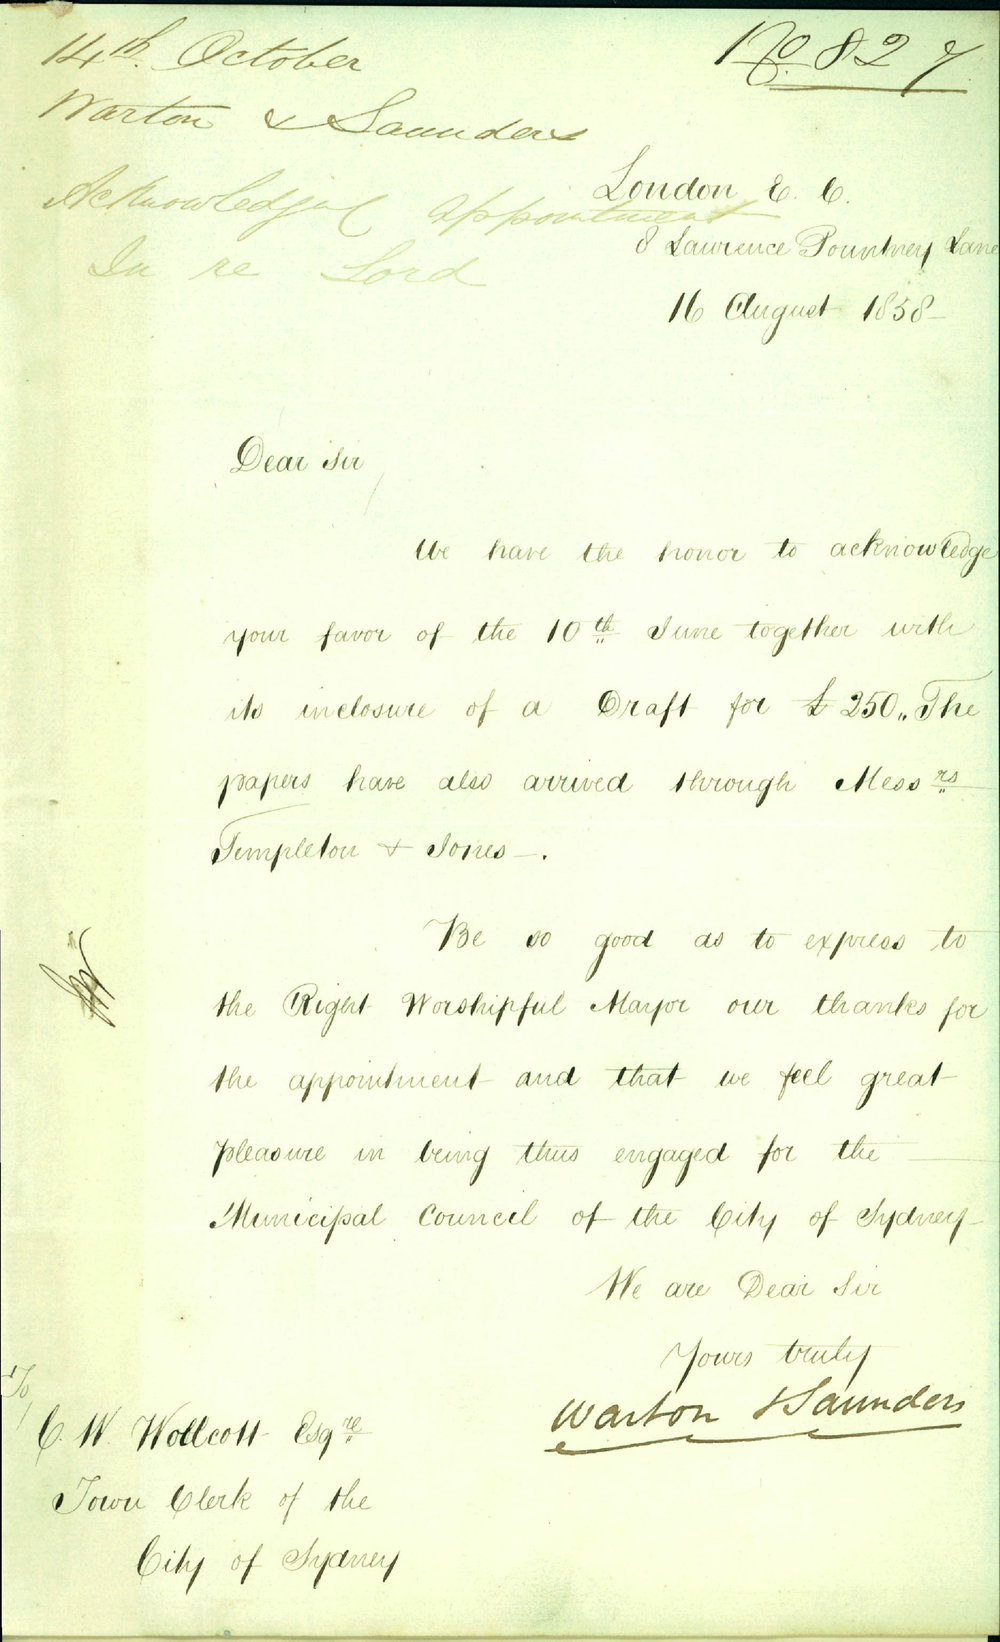 14th. October
No. 827
Warton & Saunders
Acknowledging appointment
In re Lord
London E. C.
8 Lawrence Pountney Lane
16 August 1858
Dear Sir
We have the honor to acknowledge
your favor of the 10th June together with
its inclosure of a Draft for £250,, The
papers have also arrived through Messrs
Templeton & Jones.
Be so good as to express to
the Right Worshipful Mayor our thanks for
the appointment and that we feel great
pleasure in being thus engaged for the
Municipal Council of the City of Sydney
We are Dear Sir
Yours truly
Warton & Saunders
To
C. W. Wollcott Esqre
Town Clerk of the
City of Sydney